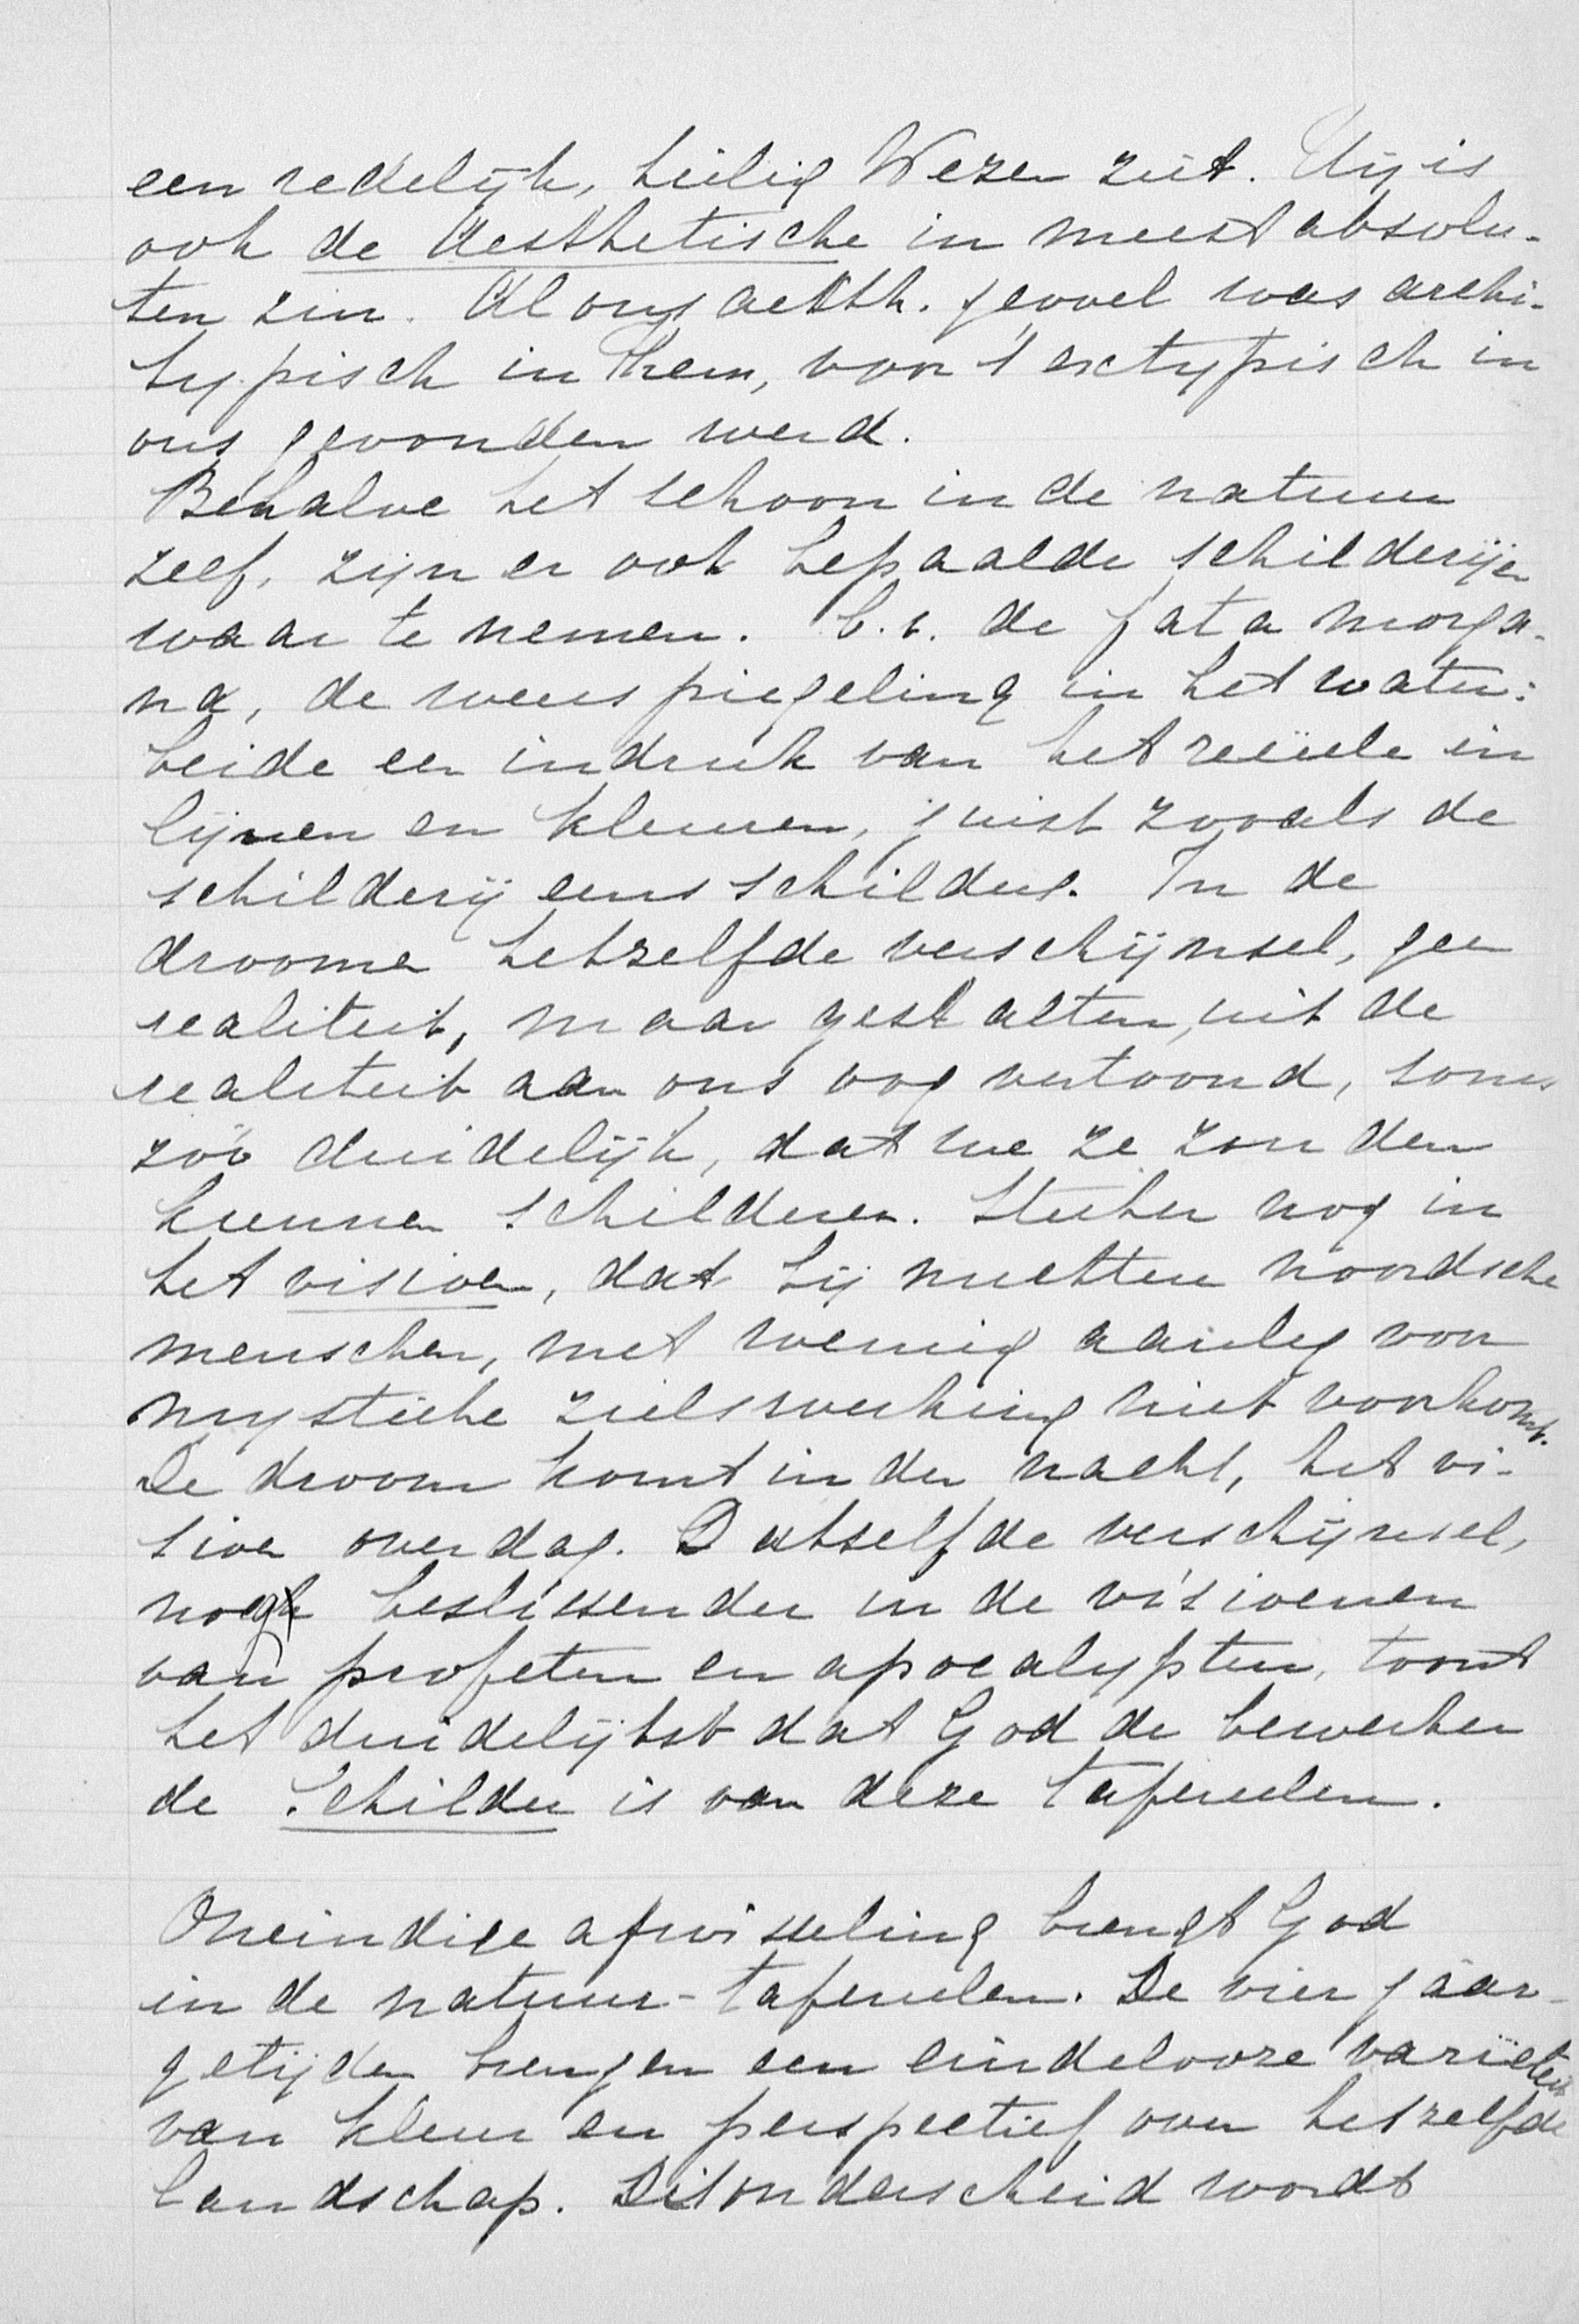 een redelijk, heilig Wezen ziet. Hij is
ook de Aesthetische in meest absolu-
ten zin. Al ons aesth. gevoel was archi-
typisch in Hem, voor 't ectypisch in
ons gevonden werd.
Behalve het schoon in de natuur
zelf, zijn er ook bepaalde schilderijen
waar te nemen. b.v. de fata morga-
na, de weerspiegeling in het water:
beide een indruk van het reëele in
lijnen en kleuren, juist zooals de
schilderij eens schilders. In de
droomen hetzelfde verschijnsel, geen
realiteit, maar gestalten, uit de
realiteit aan ons oog vertoond, soms
zóó duidelijk, dat we ze zouden
kunnen schilderen. Sterker nog in
het visioen, dat bij nuchtere noordsche
menschen, met weinig aanleg voor
mystieke zielswerking niet voorkomt.
De droom komt in den nacht, het vi-
sioen overdag. Datselfde verschijnsel,
nog beslissender in de visioenen
van profeten en apocalypten, toont
het duidelijkst dat God de bewerker
de Schilder is van deze tafereelen.
Oneindige afwisseling brengt God
in de natuur-tafereelen. De vier jaar-
getijden brengen een eindelooze variëteit
van kleur en perspectief over hetzelfde
landschap. Dit onderscheid wordt